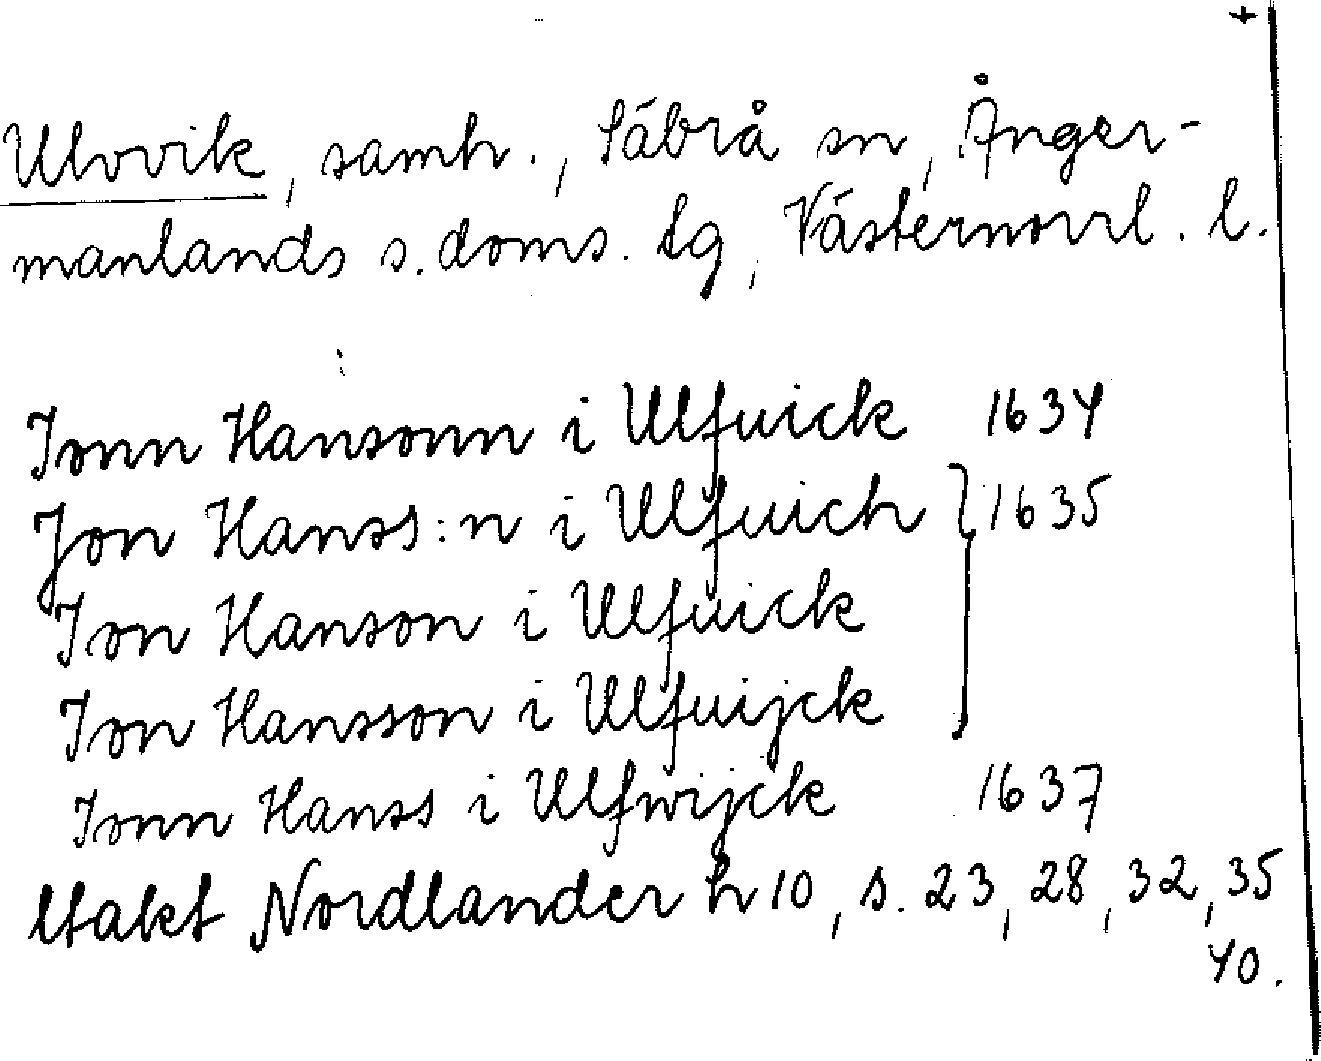 Ulvvik, samh., Säbrå sn, Ånger-
manlands s. doms. tg, Västernorrl. l.
Ionn Hansonn i Ulfuick 1634
Jon Hanss:n i Ulfuich } 1635
Ion Hanson i Ulfuick
Ion Hansson i Ulfuijck
Ionn Hanss i Ulfwijck 1637
Utakt Nordlander h 10, s. 23, 28, 32, 35
40.